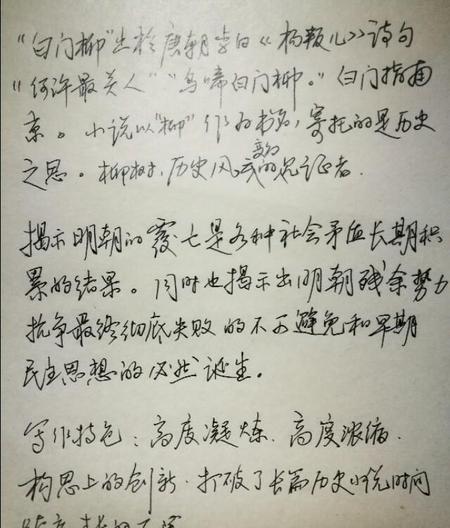 “白门柳”出于唐朝李白《杨叛儿》诗句
“何许最关人”“乌啼白门柳。”白门指南
京。小说以“柳”作为书名，寄托的是历史
之思。柳树，历史风云变幻的见证者.
揭示明朝的覆亡是各种社会矛盾长期积
累的结果。同时也揭示出明朝残余势力
抗争最终彻底失败的不可避免和早期
民主思想的必然诞生。
写作特色：高度凝炼.高度浓缩.
构思上的创新.打破了长篇历史小说时间